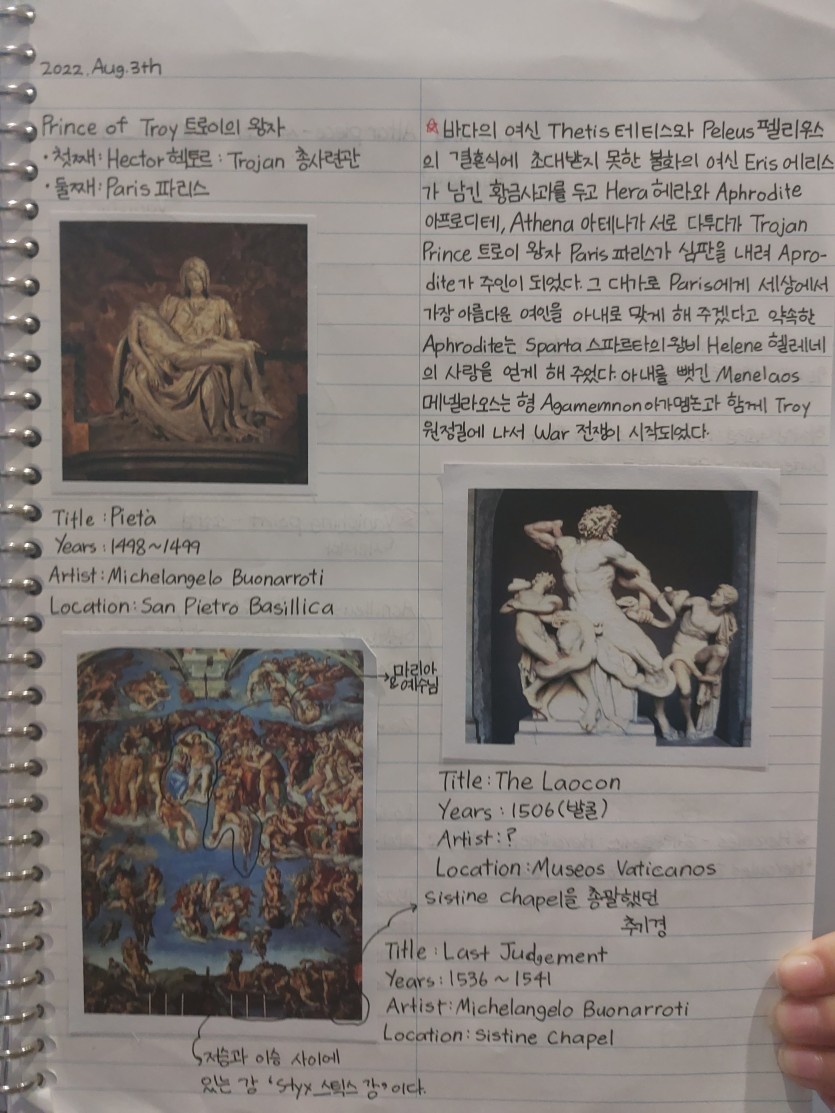 2022. Aug. 3th
Prince of Troy 트로이의 왕자
· 첫째 : Hector 헥토르 : Trojan 총사련관
· 둘째 : Paris 파리스
Title : Pietà
Years : 1498~1499
Artist : Michelangelo Buonarroti
Location : San Pietro Basillica
마리아
와 예수님
저승과 이승 사이에
있는 강 'Styx 스틱스 강' 이다.
바다의 여신 Thetis 테티스와 Peleus 펠리우스
의 결혼식에 초대받지 못한 불화의 여신 Eris 에리스
가 남긴 황금사과를 두고 Hera 헤라와 Aphrodite
아프로디테, Athena 아테나가 서로 다투다가 Trojan
Prince 트로이 왕자 Paris 파리스가 심판을 내려 Apro-
dite가 주인이 되었다. 그 대가로 Paris에게 세상에서
가장 아름다운 여인을 아내로 맞게 해 주겠다고 약속한
Aphrodite는 Sparta 스파르타의 왕비 Helene 헬레네
의 사랑을 얻게 해 주었다. 아내를 뺏긴 Menelaos
메넬라오스는 형 Agamemnon 아가멤논과 함께 Troy
원정길에 나서 War 전쟁이 시작되었다.
Title : The Laocon
Years : 1506 (발굴)
Artist : ?
Location : Museos Vaticanos
Sistine Chapel을 총괄했던
추기경
Title : Last Judgement
Years : 1536 ~ 1541
Artist : Michelangelo Buonarroti
Location : Sistine Chapel